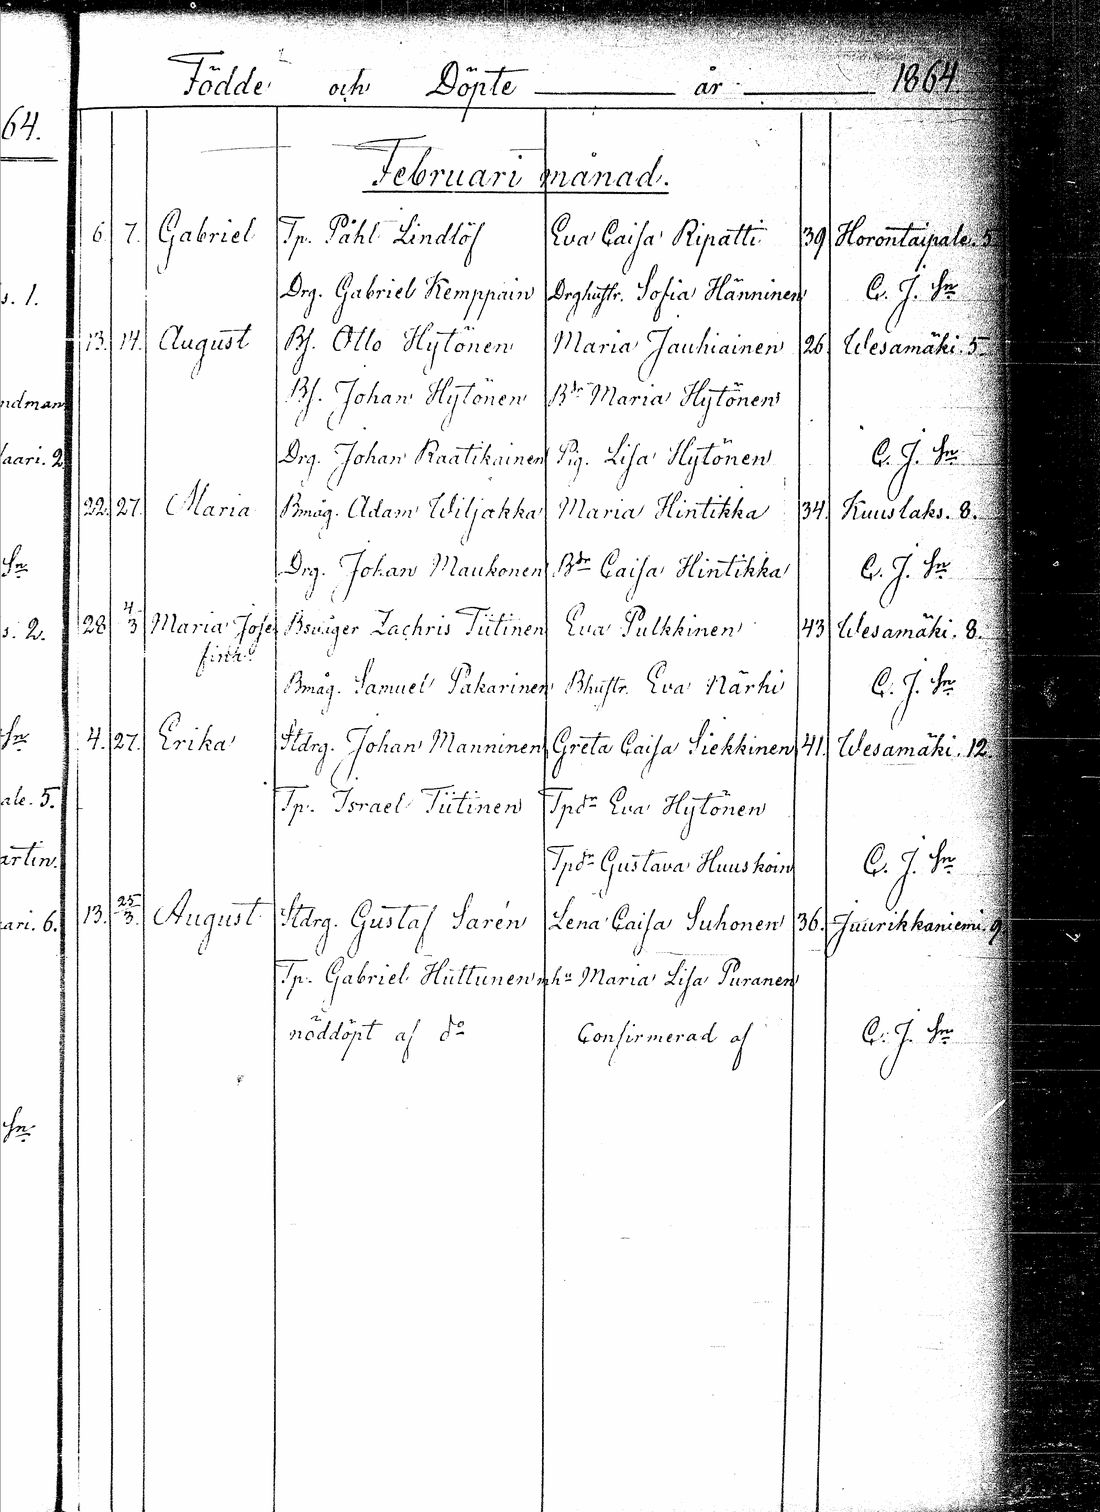 Födde och Döpte år 1864.
64.
Februari månad.
6. 7. Gabriel Tp. Påhl Lindlöf Eva Caisa Ripatti 39 Horontaipale. 5
s. 1. Drg. Gabriel Kemppain Drghustr. Sofia Hänninen C. J. Sn
13. 14. August Bs. Otto Hytönen Maria Jauhiainen 26 Wesamäki. 5.
ndman Bs. Johan Hytönen Bdr Maria Hytönen
saari. 2 Drg. Johan Raatikainen Pig. Lisa Hytönen C. J. Sn
22. 27. Maria Bmåg. Adam Wiljakka Maria Hintikka 34. Kuuslaks. 8.
Sn Drg. Johan Maukonen Bdr Caisa Hintikka C. J. Sn
s. 2. 28 4/3 Maria Jose Bsvåger Zachris Tiitinen Eva Pulkkinen 43 Wesamäki. 8.
fina.
Bmåg. Samuel Pakarinen Bhustr. Eva Närhi C. J. Sn
Sn 4. 27. Erika Stdrg. Johan Manninen Greta Caisa Siekkinen 41. Wesamäki. 12.
ale. 5. Tp. Israel Tiitinen Tpdr Eva Hytönen
artin. Tpdr Gustava Huuskoin C. J. Sn
ari. 6. 13. 25/3. August Stdrg. Gustaf Sarén Lena Caisa Suhonen 36. Juurikkaniemi. 9
Tp. Gabriel Huttunen mhu Maria Lisa Puranen
nöddöpt af do Confirmerad af C. J. Sn
Sn